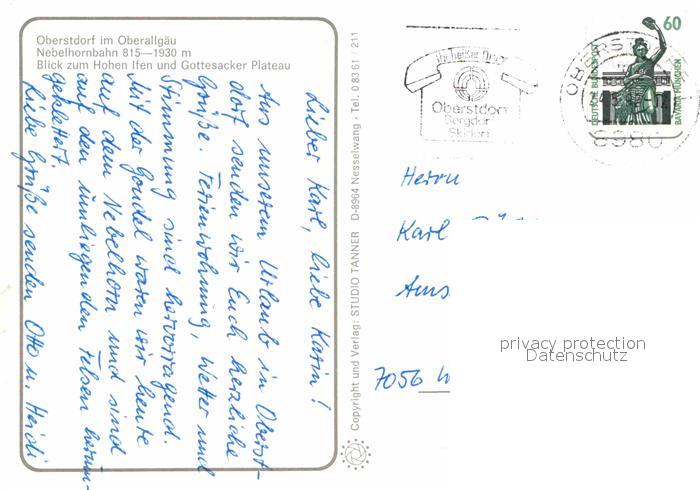 Oberstdorf im Oberallgäu
Nebelhornbahn 815—1930 m
Blick zum Hohen Ifen und Gottesacker Plateau
Lieber Karl, liebe Karin!
Aus unserem Urlaub in Oberst-
dorf senden wir Euch herzliche
Grüße. Ferienwohnung, Wetter und
Stimmung sind hervorragend.
Mit der Gondel waren wir heute
auf dem Nebelhorn und sind
auf den umliegenden Felsen herum-
geklettert.
Liebe Grüße senden Otto u. Heidi
Copyright und Verlag: STUDIO TANNER D-8964 Nesselwang · Tel. 0 83 61 / 211
Ihr heißer Draht
Oberstdorf
Bergdorf
Skidorf
OBERST
8980
60
DEUTSCHE BUNDESPOST
BAVARIA MÜNCHEN
Herrn
Karl
Ams
7056 W
privacy protection
Datenschutz